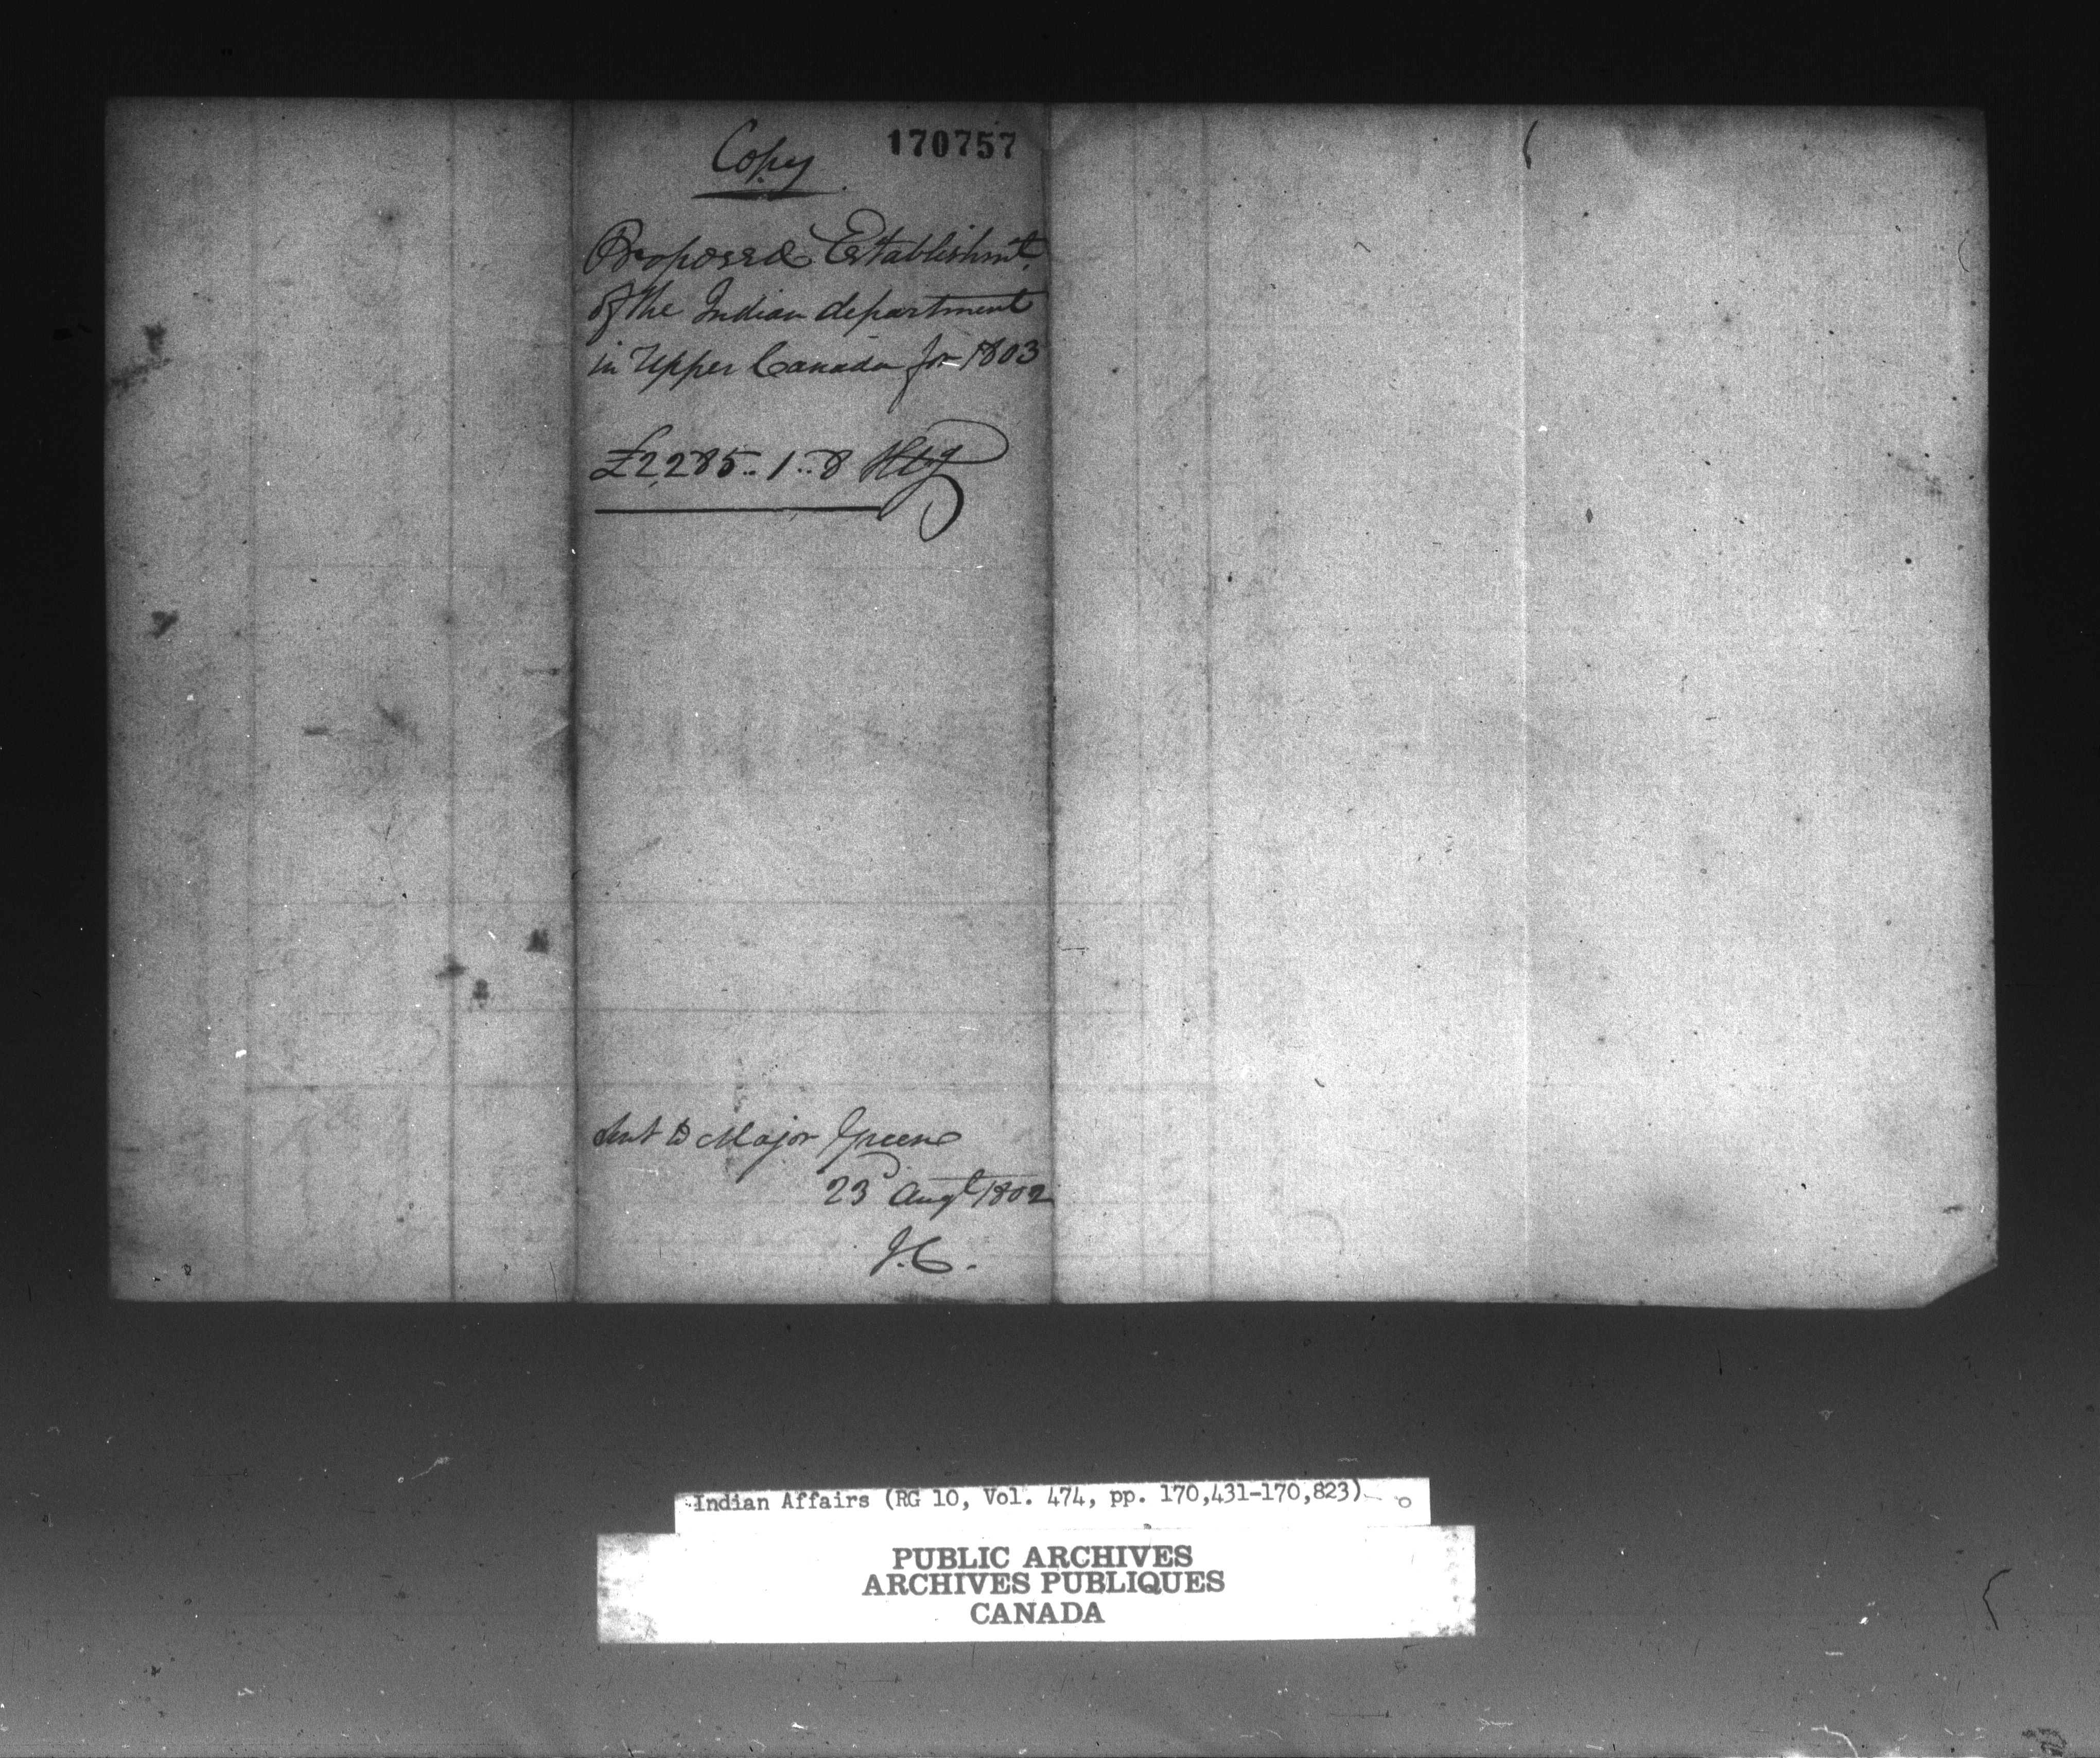 Copy
170757
Proposed Establishmt.
of the Indian department
in Upper Canada for 1803
£2,285..1..8 Stg
Sent to Major Green
23d Augt 1802
J.C.
Indian Affairs (RG 10, Vol. 474, pp. 170,431-170,823)
PUBLIC ARCHIVES
ARCHIVES PUBLIQUES
CANADA